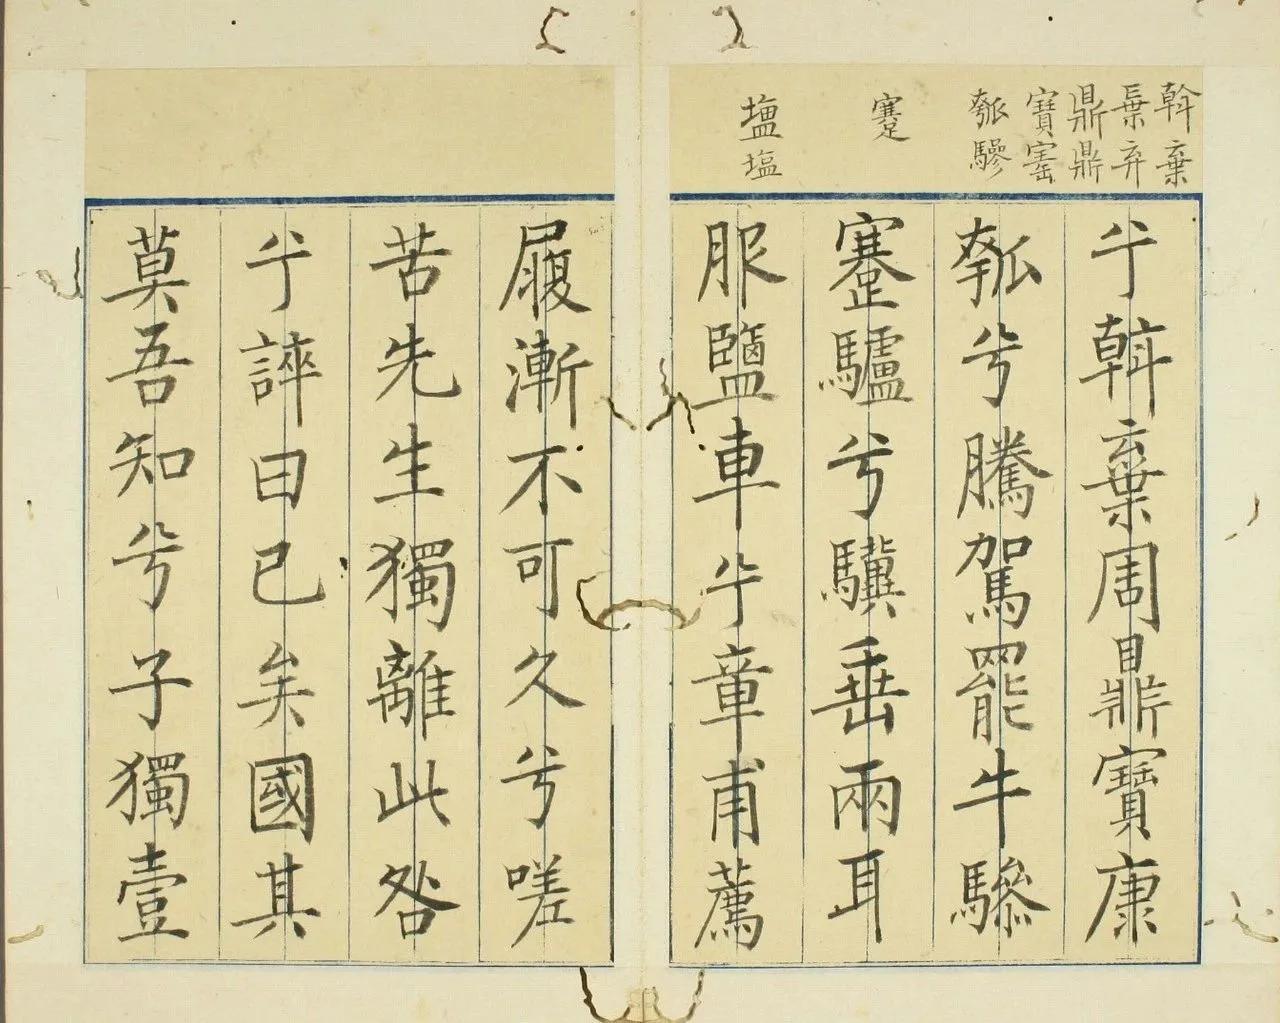 斡棄
棄弃
鼎鼎
寶窑
瓠驂
蹇
塩塩
兮斡棄周鼎寶康
瓠兮騰駕罷牛驂
蹇驢兮驥垂兩耳
服鹽車兮章甫薦
履漸不可久兮嗟
苦先生獨離此咎
兮誶曰已矣國其
莫吾知兮子獨壹